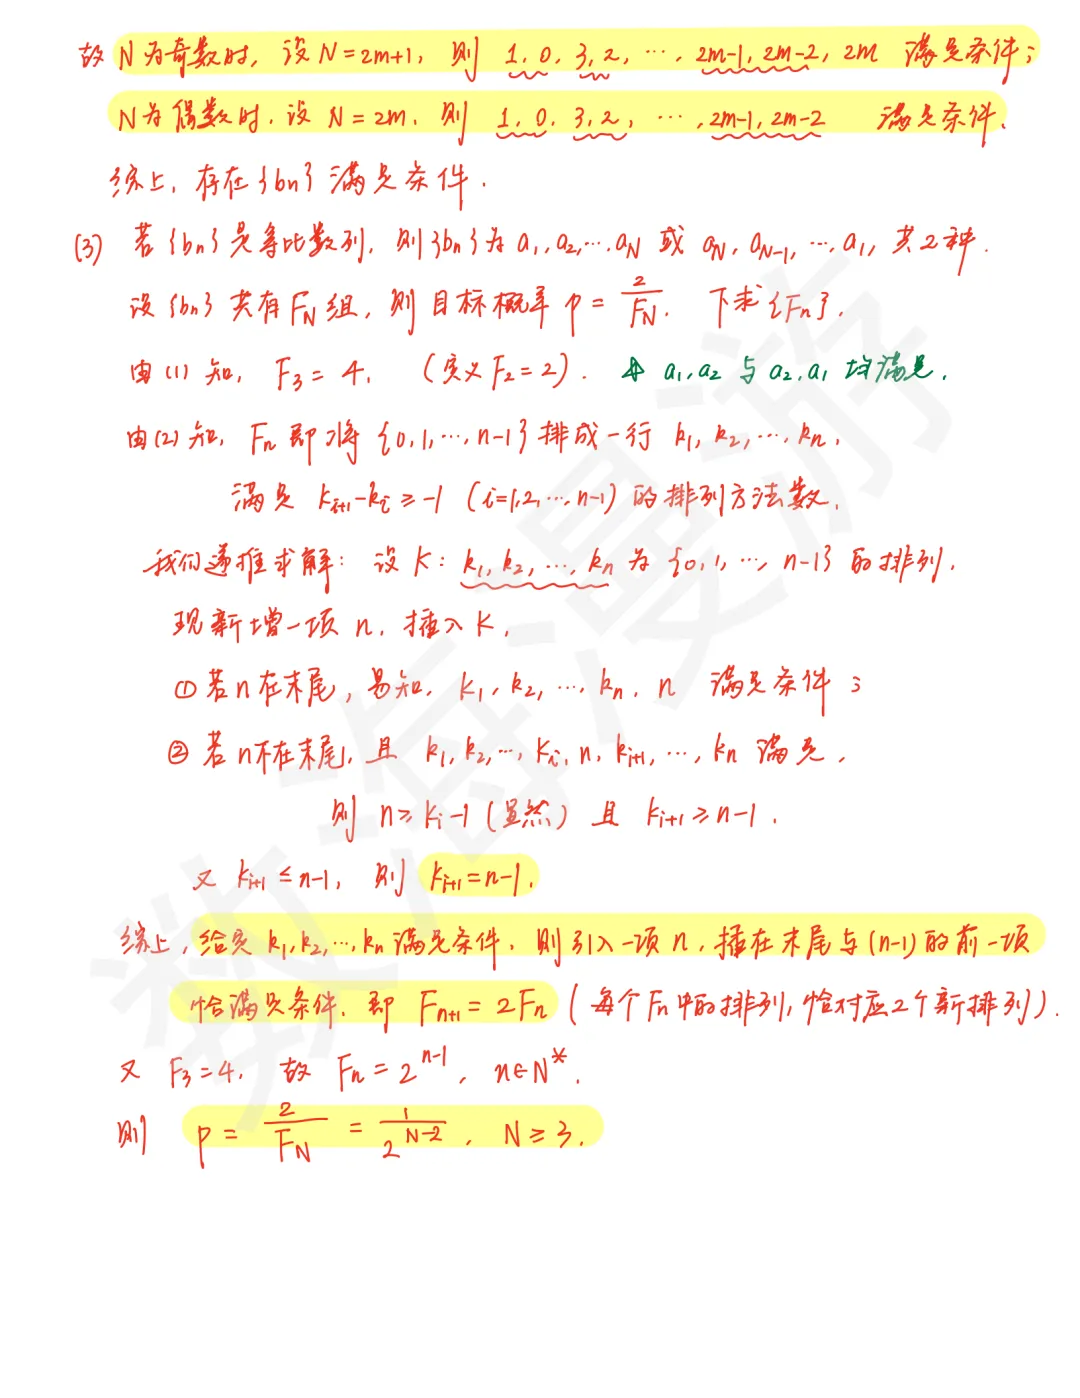 故 N为奇数时, 设 N=2m+1, 则 1, 0, 3, 2, ⋯, 2m-1, 2m-2, 2m 满足条件;
N为偶数时, 设 N=2m, 则 1, 0, 3, 2, ⋯, 2m-1, 2m-2 满足条件.
综上, 存在{bn}满足条件.
(3) 若{bn}是等比数列, 则{bn}为 a₁, a₂, ⋯, a_N 或 a_N, a_{N-1}, ⋯, a₁, 共2种.
设{bn}共有F_N组, 则目标概率 p = 2/F_N. 下求{Fn}.
由(1)知, F₃=4, (定义F₂=2). a₁,a₂与a₂,a₁均满足.
由(2)知, Fn即将{0,1,⋯,n-1}排成一行 k₁, k₂, ⋯, kn,
满足 k_{i+1}-k_i ≥ -1 (i=1,2,⋯,n-1) 的排列方法数.
我们递推求解: 设 K: k₁, k₂, ⋯, kn 为 {0, 1, ⋯, n-1} 的排列.
现新增一项 n, 插入 K,
① 若n在末尾, 易知, k₁, k₂, ⋯, kn, n 满足条件;
② 若n不在末尾, 且 k₁, k₂, ⋯, k_i, n, k_{i+1}, ⋯, kn 满足,
则 n ≥ k_i-1 (显然) 且 k_{i+1} ≥ n-1.
又 k_{i+1} ≤ n-1, 则 k_{i+1}=n-1.
综上, 给定 k₁, k₂, ⋯, kn 满足条件, 则引入一项 n, 插在末尾与(n-1)的前一项
恰满足条件. 即 F_{n+1} = 2Fn (每个Fn中的排列, 恰对应2个新排列).
又 F₃=4, 故 Fn = 2^{n-1}, n∈N*.
则 p = 2/F_N = 1/2^{N-2}, N ≥ 3.
数海漫游